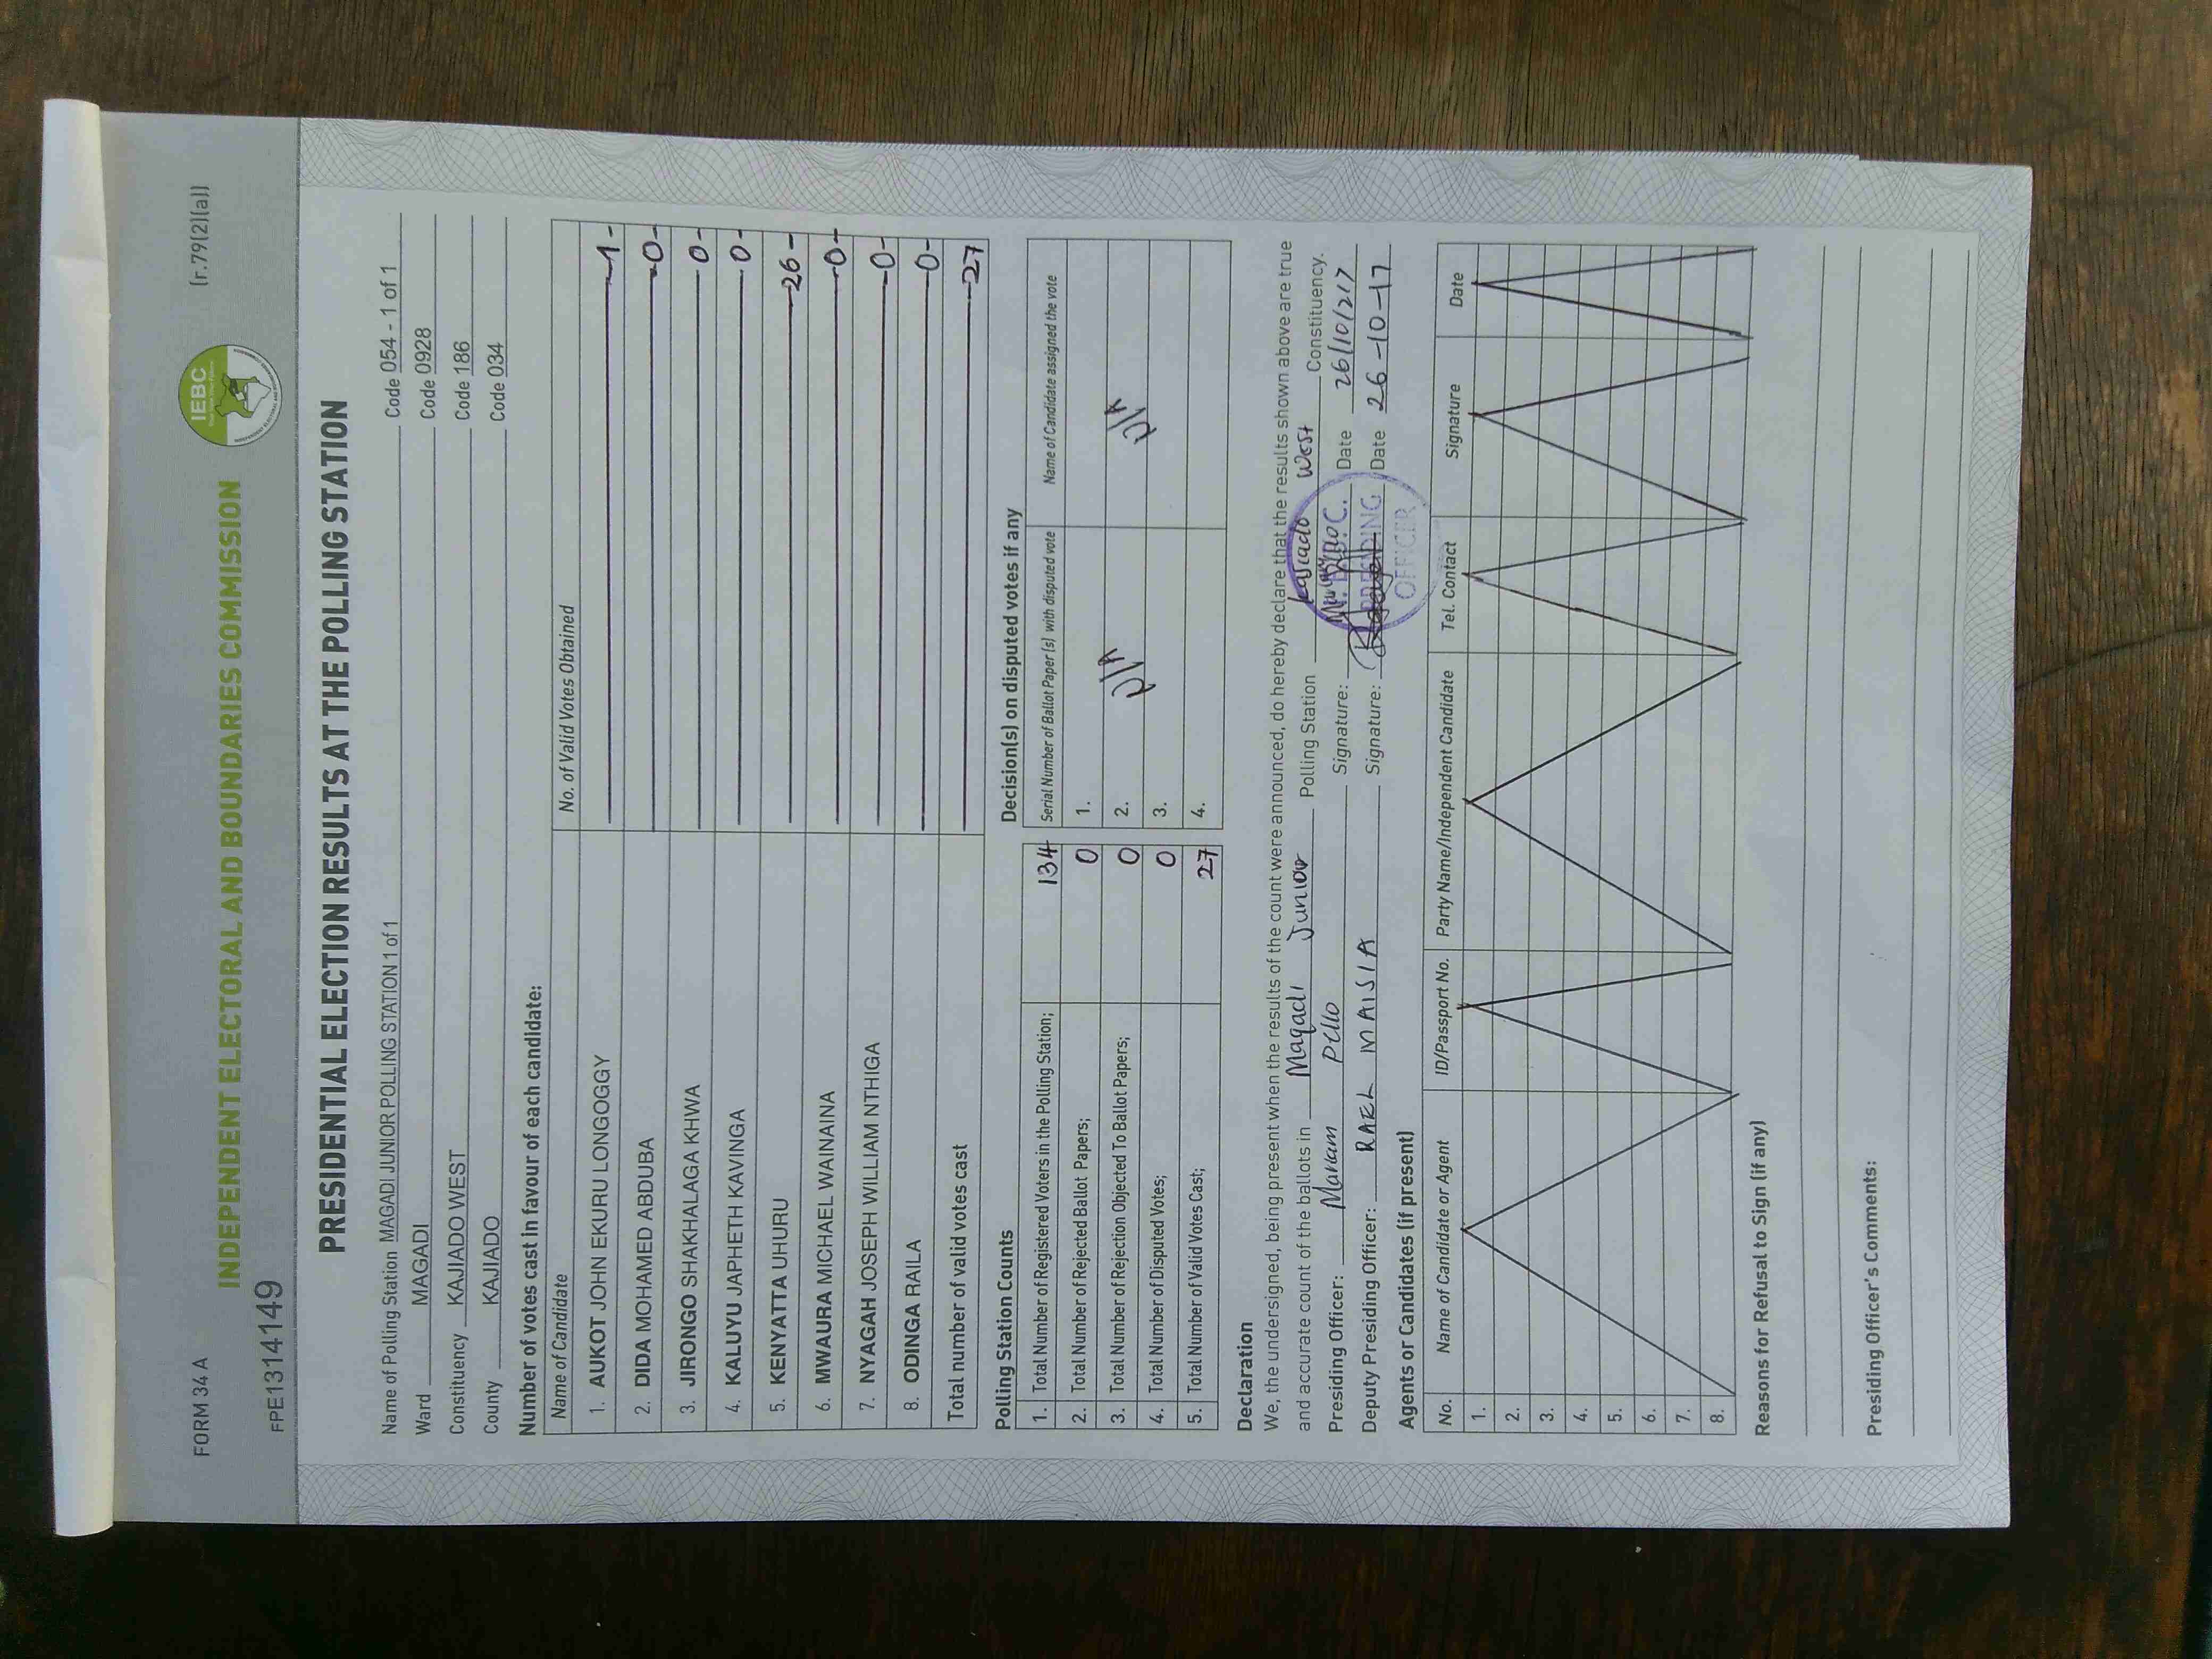 FORM 34 A
[r.79(2)(a)]
IEBC
INDEPENDENT ELECTORAL AND BOUNDARIES COMMISSION
FPE1314149
PRESIDENTIAL ELECTION RESULTS AT THE POLLING STATION
Name of Polling Station MAGADI JUNIOR POLLING STATION 1 of 1 Code 054 - 1 of 1
Ward MAGADI Code 0928
Constituency KAJIADO WEST Code 186
County KAJIADO Code 034
Number of votes cast in favour of each candidate:
Name of Candidate No. of Valid Votes Obtained
1. AUKOT JOHN EKURU LONGOGGY -1-
2. DIDA MOHAMED ABDUBA -0-
3. JIRONGO SHAKHALAGA KHWA 0-
4. KALUYU JAPHETH KAVINGA 0-
5. KENYATTA UHURU 26-
6. MWAURA MICHAEL WAINAINA -0-
7. NYAGAH JOSEPH WILLIAM NTHIGA -0-
8. ODINGA RAILA -0-
Total number of valid votes cast 27
Polling Station Counts
1. Total Number of Registered Voters in the Polling Station; 134
2. Total Number of Rejected Ballot Papers; 0
3. Total Number of Rejection Objected To Ballot Papers; 0
4. Total Number of Disputed Votes; 0
5. Total Number of Valid Votes Cast; 27
Decision(s) on disputed votes if any
Serial Number of Ballot Paper (s) with disputed vote Name of Candidate assigned the vote
1.
2. N/A N/A
3.
4.
Declaration
We, the undersigned, being present when the results of the count were announced, do hereby declare that the results shown above are true
and accurate count of the ballots in Magadi Junior Polling Station Kajiado West Constituency.
Presiding Officer: Mariam Pello Signature: Date 26/10/217
Deputy Presiding Officer: RAEL MAISIA Signature: Date 26-10-17
PRESIDING
OFFICER
Agents or Candidates (if present)
No. Name of Candidate or Agent ID/Passport No. Party Name/Independent Candidate Tel. Contact Signature Date
1.
2.
3.
4.
5.
6.
7.
8.
Reasons for Refusal to Sign (if any)
Presiding Officer's Comments: